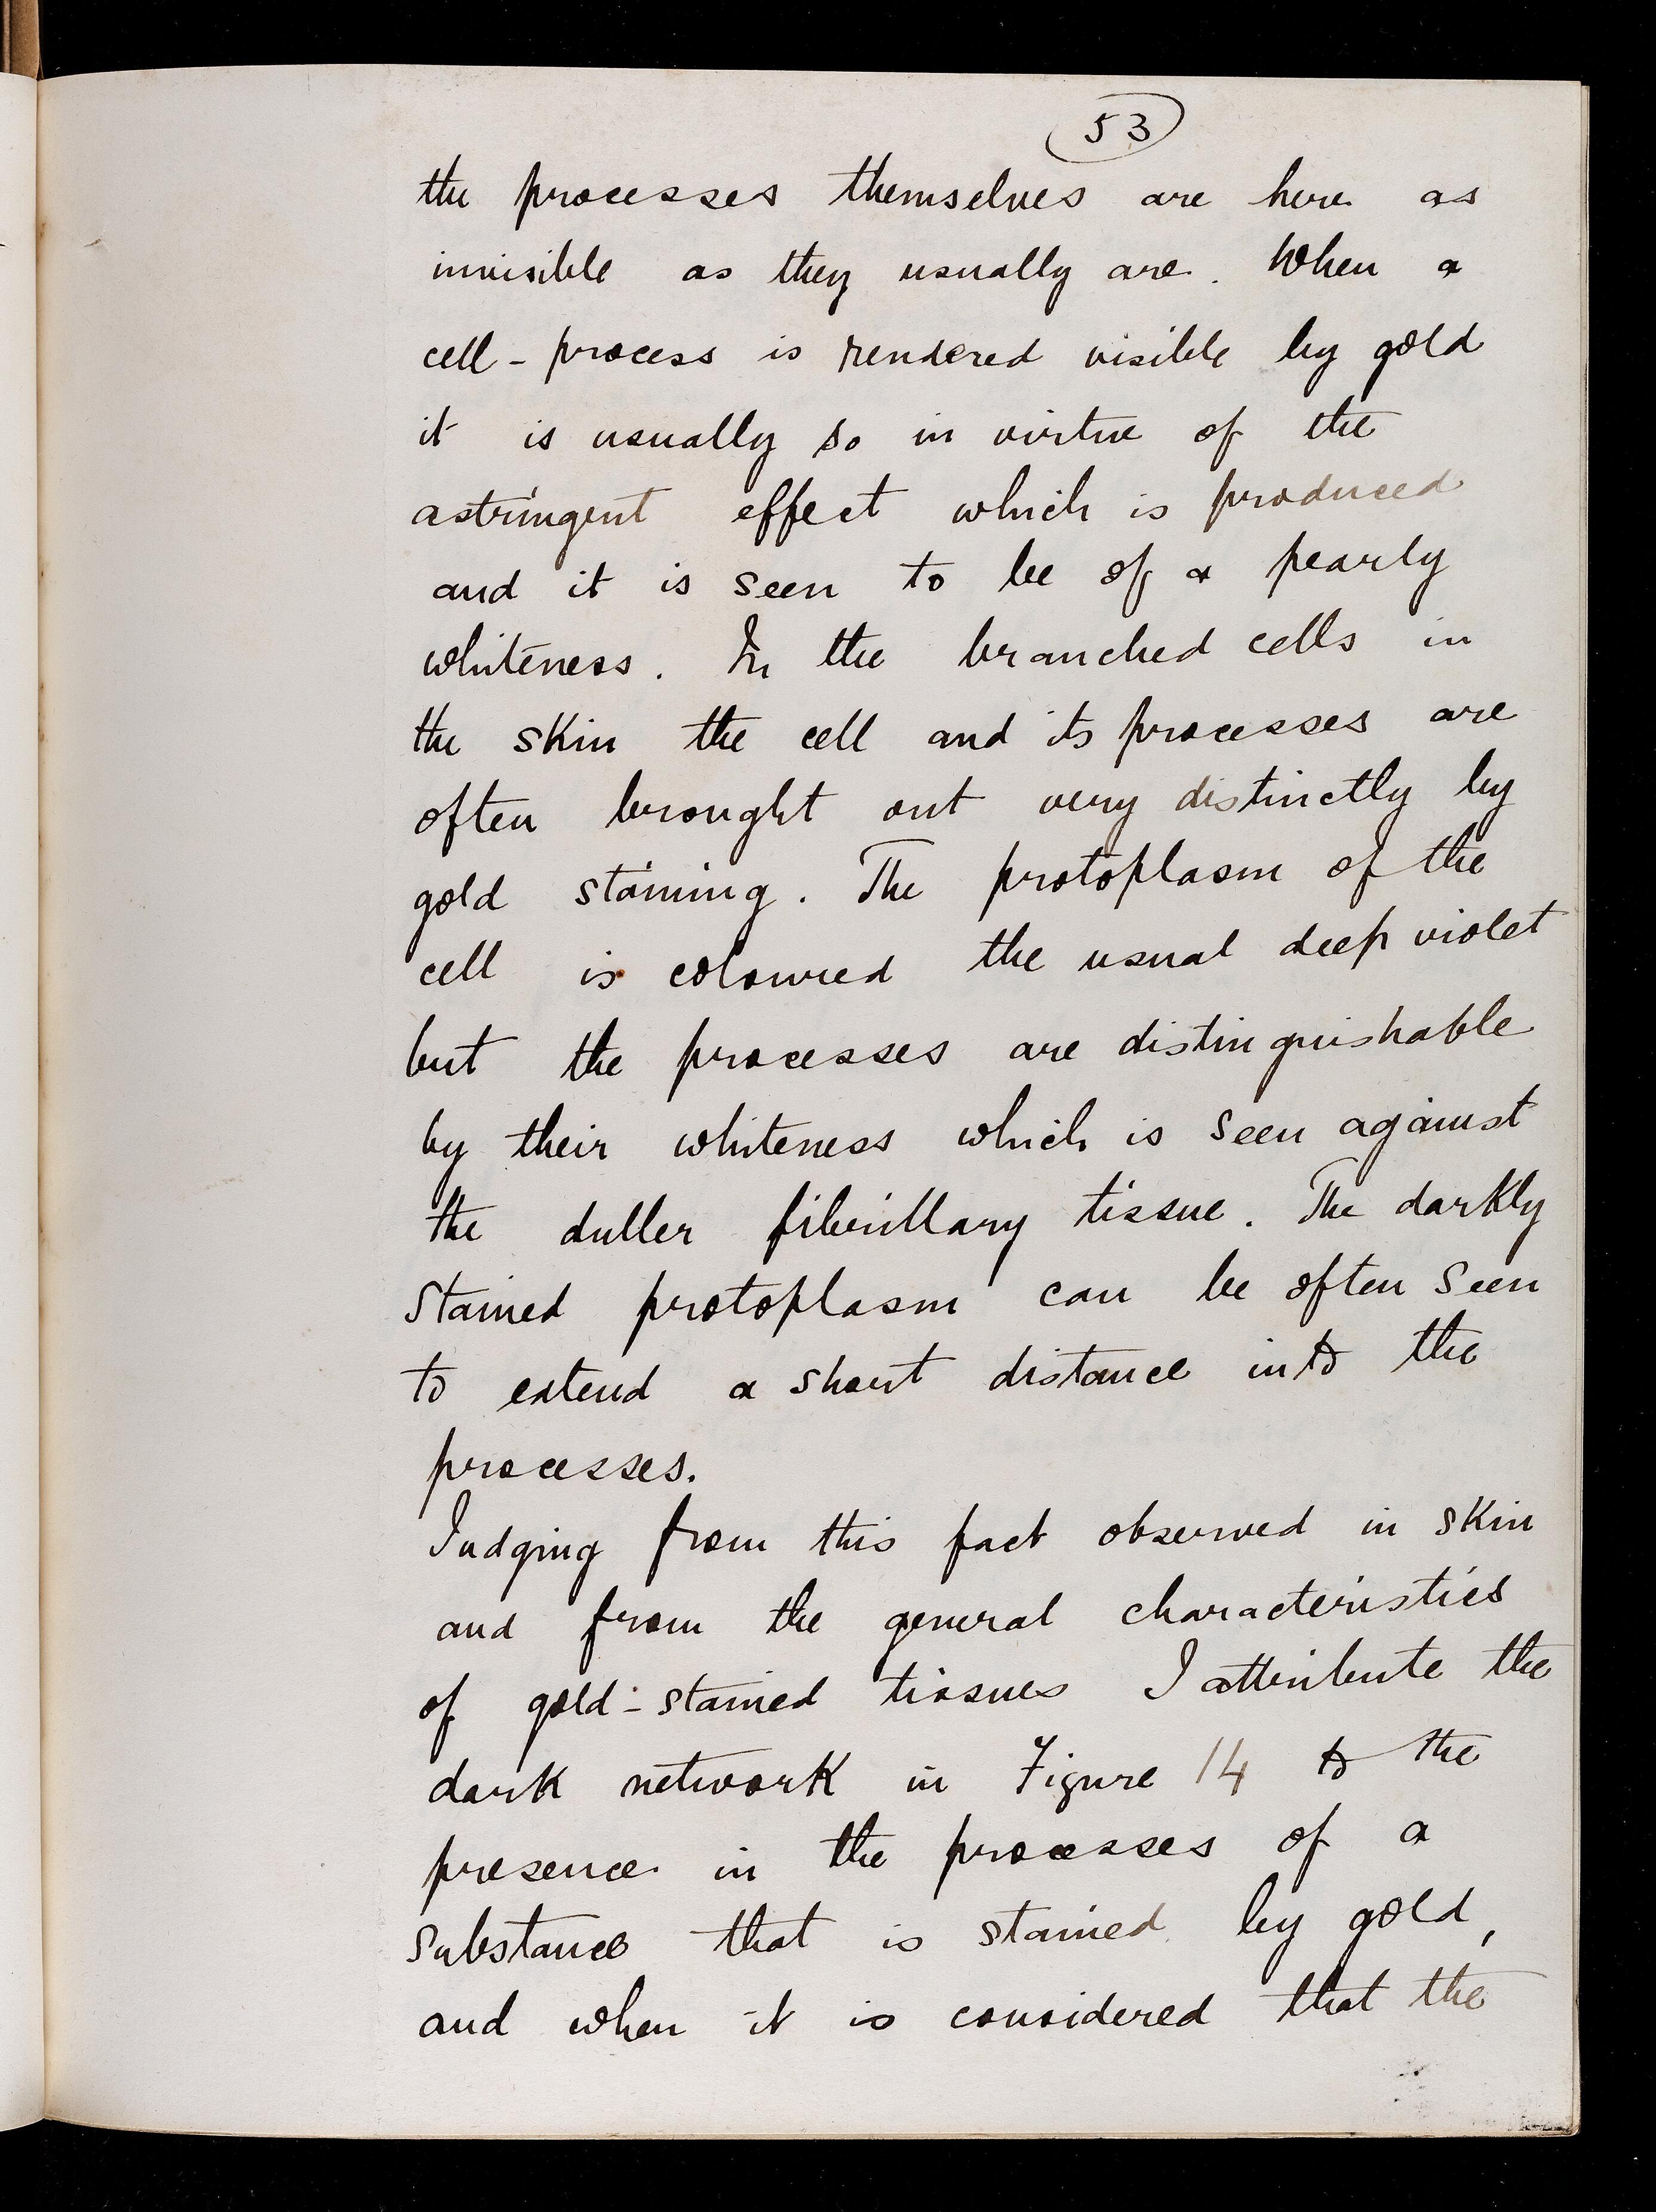 53
the processes themselves are here as
invisible as they usually are. When a
cell-process is rendered visible by gold
it is usually so in virtue of the
astringent effect which is produced
and it is seen to be of a pearly
whiteness. In the branched cells in
the skin the cell and its processes are
often brought out very distinctly by
gold staining. The protoplasm of the
cell is coloured the usual deep violet
but the processes are distinguishable
by their whiteness which is seen against
the duller fibrillary tissue. The darkly
stained protoplasm can be often seen
to extend a short distance into the
processes.
Judging from this fact observed in skin
and from the general characteristics
of gold-stained tissues I attribute the
dark network in Figure 14 to the
presence in the processes of a
substance that is stained by gold,
and when it is considered that the